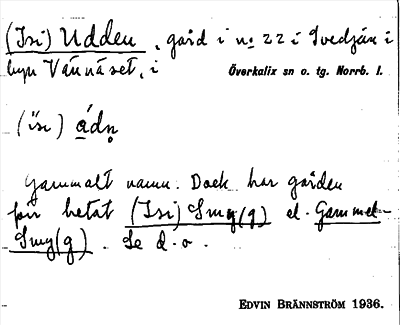 (Isi) Udden, gård i no 22 i Svedjan i
byn Vännäset, i Överkalix sn o. tg. Norrb. l.
(ìsı) ádn̥
Gammalt namn. Dock har gården
förr hetat (Isi) Smy(g) el. Gammel-
Smy(g). Se d. o.
EDVIN BRÄNNSTRÖM 1936.